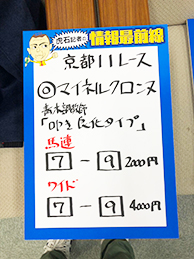 虎石記者の
情報最前線
京都11レース
◎マイネルクロンヌ
青木調教師
「叩き良化タイプ」
馬連
7－9 2000円
ワイド
7－9 4000円